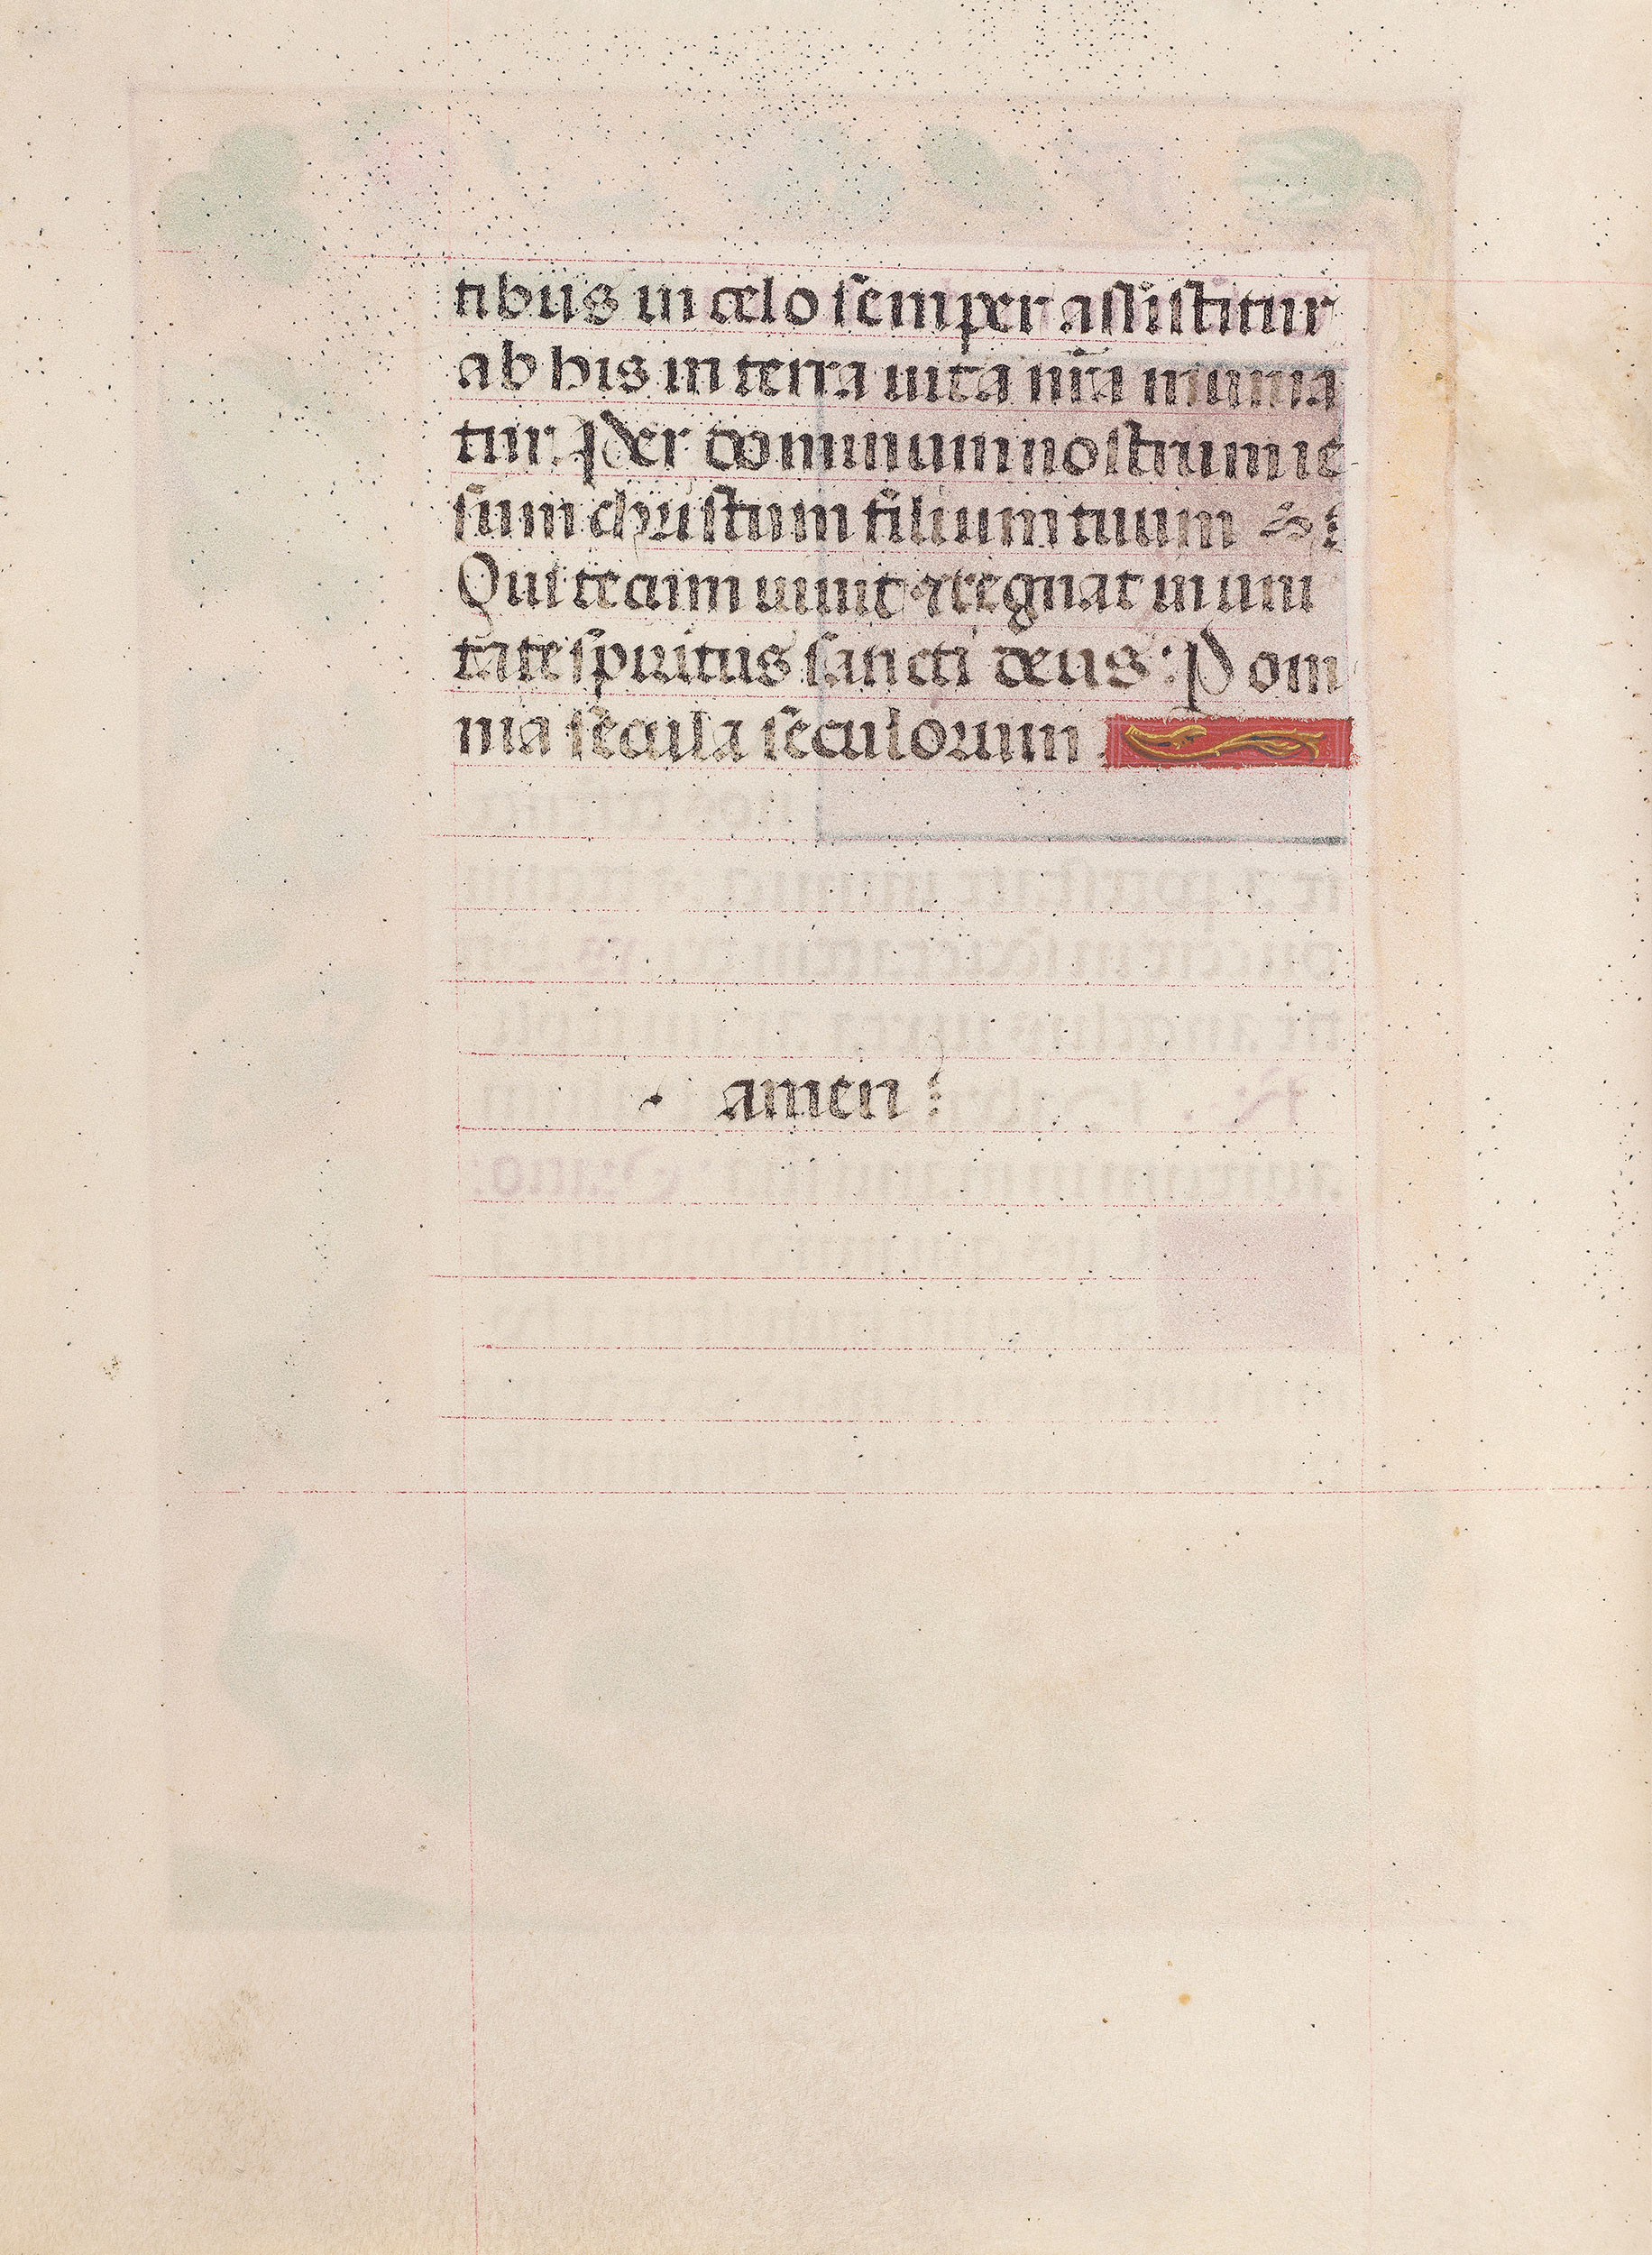 tibus in celo semper assistitur
ab his in terra uita nr̄a munia
tur. Per dominum nostrum ie
sum christum filium tuum
Qui tecum uiuit ⁊ regnat in uni
tate spiritus sancti deus: P om
nia secula seculorum.
amen